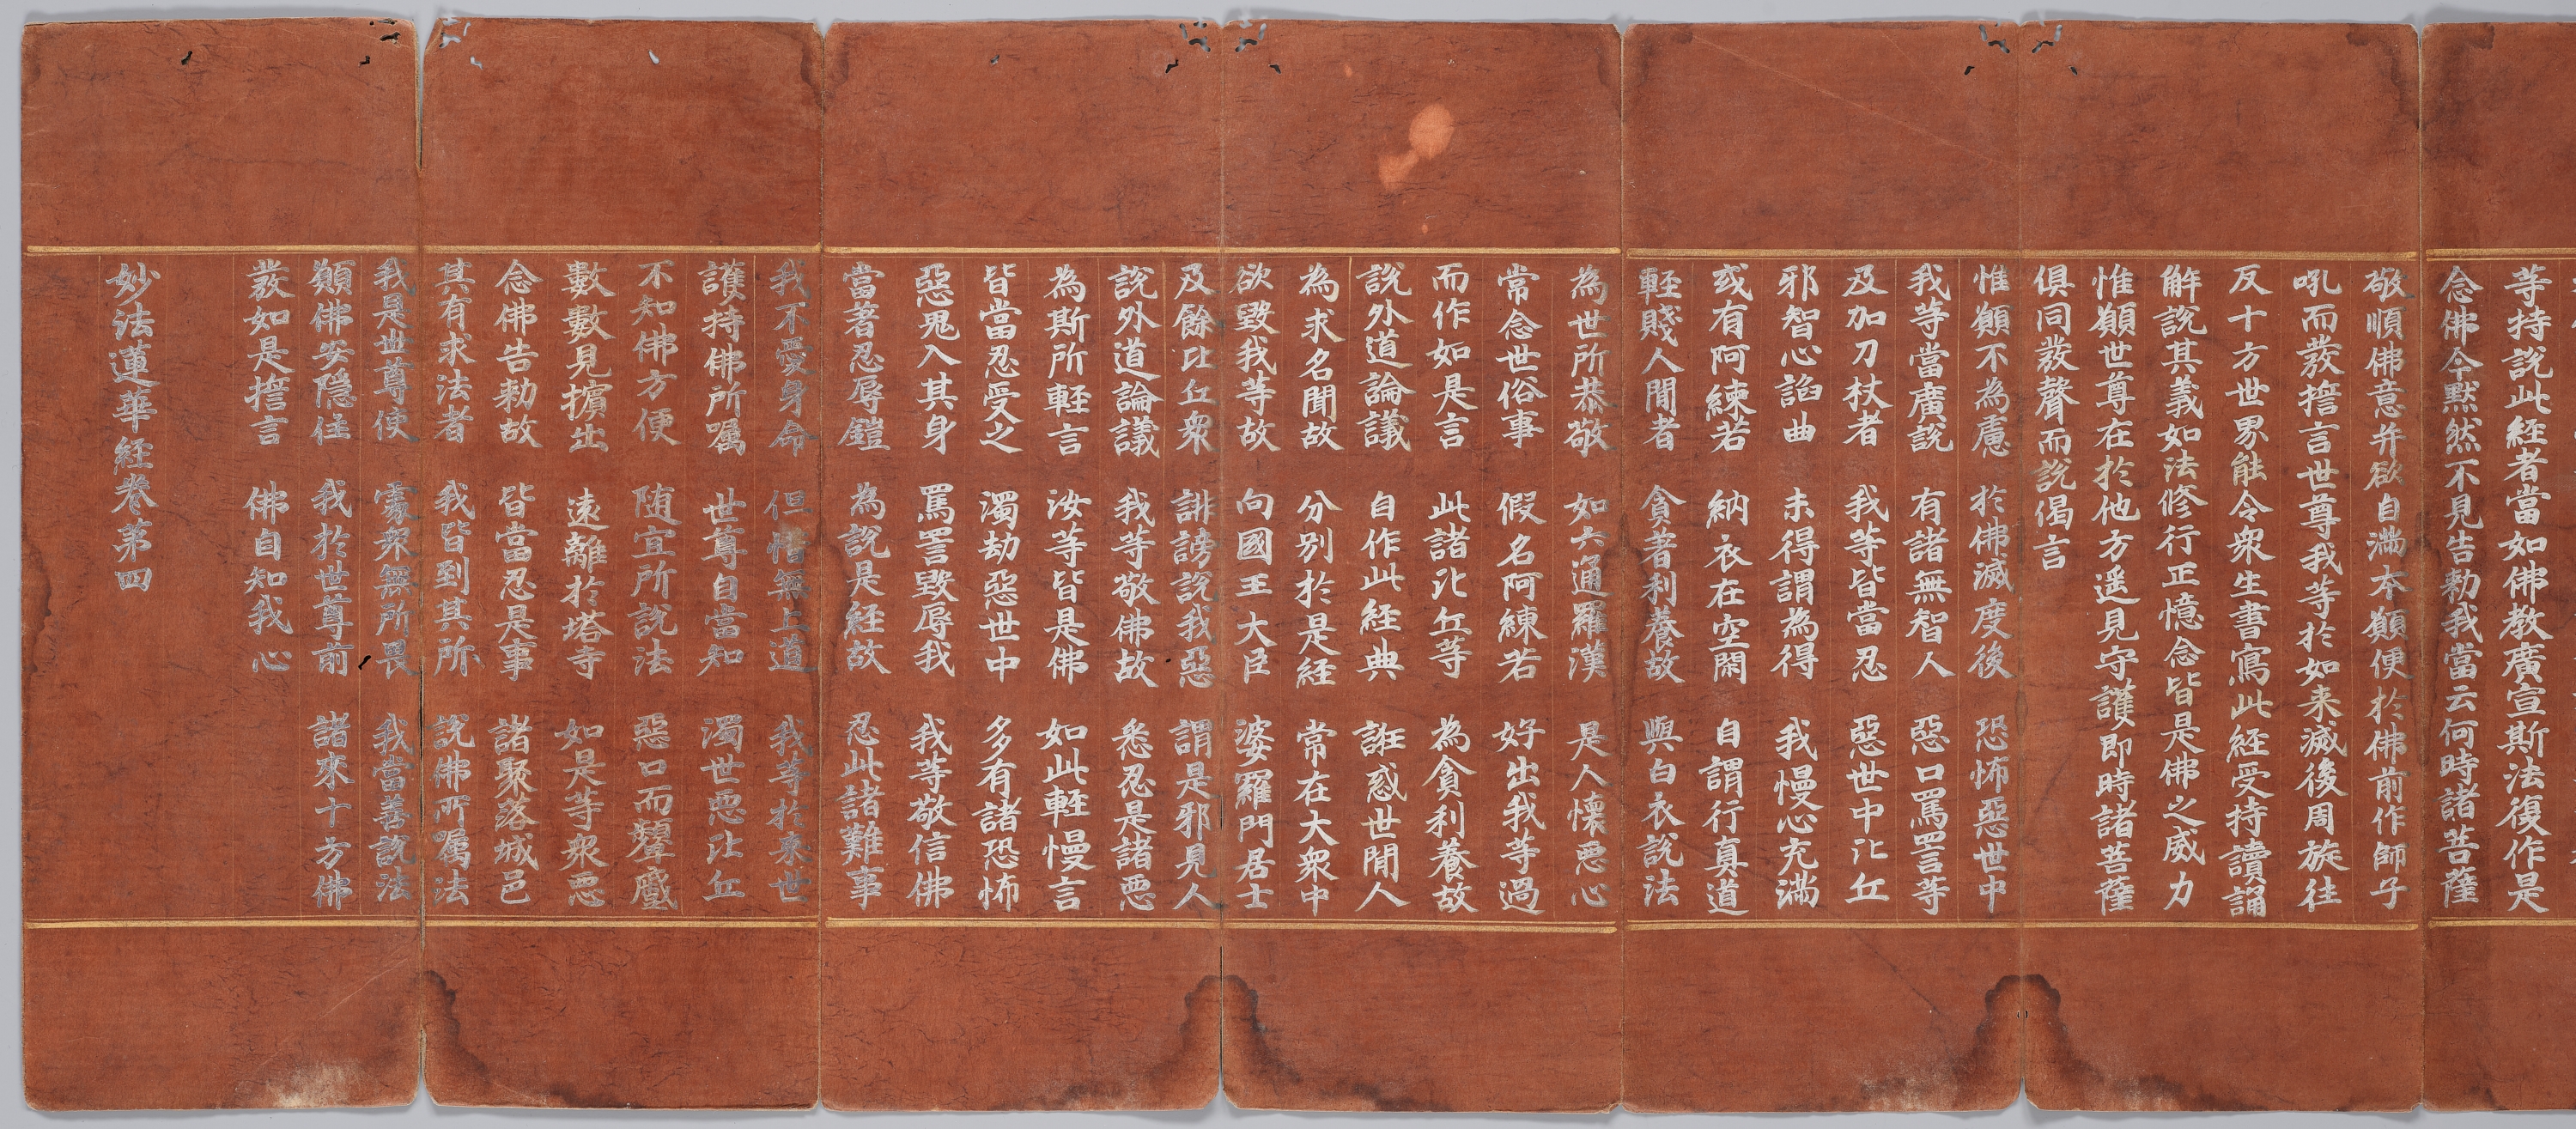 等持說此經者當如佛教廣宣斯法復作是
念佛今默然不見告勑我當云何時諸菩薩
敬順佛意并欲自滿本願便於佛前作師子
吼而發誓言世尊我等於如来滅後周旋往
反十方世界能令衆生書寫此經受持讀誦
解說其義如法修行正憶念皆是佛之威力
惟願世尊在於他方遥見守護即時諸菩薩
俱同發聲而說偈言
惟願不為慮　於佛滅度後　恐怖惡世中
我等當廣說　有諸無智人　惡口罵詈等
及加刀杖者　我等皆當忍　惡世中比丘
邪智心諂曲　未得謂為得　我慢心充滿
或有阿練若　納衣在空閑　自謂行真道
輕賤人間者　貪著利養故　與白衣說法
為世所恭敬　如六通羅漢　是人懷惡心
常念世俗事　假名阿練若　好出我等過
而作如是言　此諸比丘等　為貪利養故
說外道論議　自作此經典　誑惑世間人
為求名聞故　分別於是經　常在大衆中
欲毀我等故　向國王大臣　婆羅門居士
及餘比丘衆　誹謗說我惡　謂是邪見人
說外道論議　我等敬佛故　悉忍是諸惡
為斯所輕言　汝等皆是佛　如此輕慢言
皆當忍受之　濁劫惡世中　多有諸恐怖
惡鬼入其身　罵詈毀辱我　我等敬信佛
當著忍辱鎧　為說是經故　忍此諸難事
我不愛身命　但惜無上道　我等於來世
護持佛所囑　世尊自當知　濁世惡比丘
不知佛方便　隨宜所說法　惡口而顰蹙
數數見擯出　遠離於塔寺　如是等衆惡
念佛告勑故　皆當忍是事　諸聚落城邑
其有求法者　我皆到其所　說佛所囑法
我是世尊使　處衆無所畏　我當善說法
願佛安隱住　我於世尊前　諸來十方佛
發如是誓言　佛自知我心
妙法蓮華經卷第四